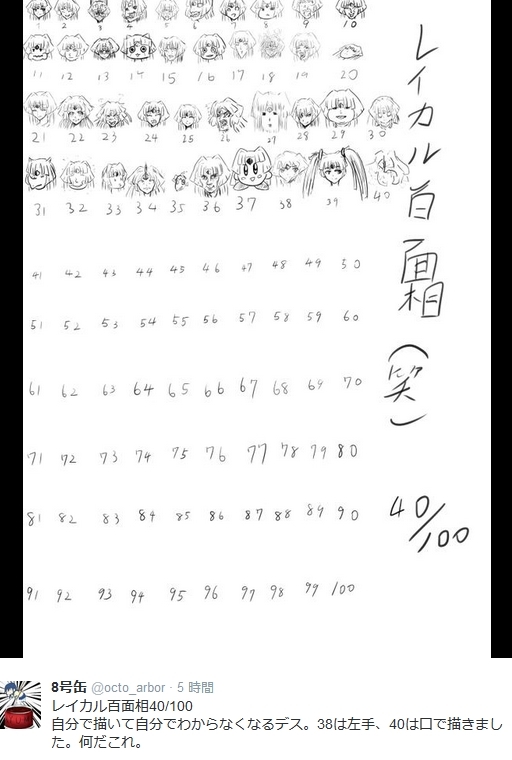 1 2 3 4 5 6 7 8 9 10
11 12 13 14 15 16 17 18 19 20
21 22 23 24 25 26 27 28 29 30
31 32 33 34 35 36 37 38 39 40
41 42 43 44 45 46 47 48 49 50
51 52 53 54 55 56 57 58 59 60
61 62 63 64 65 66 67 68 69 70
71 72 73 74 75 76 77 78 79 80
81 82 83 84 85 86 87 88 89 90
91 92 93 94 95 96 97 98 99 100
レイカル百面相(笑)
40/100
8号缶 @octo_arbor · 5 時間
レイカル百面相40/100
自分で描いて自分でわからなくなるデス。38は左手、40は口で描きまし
た。何だこれ。